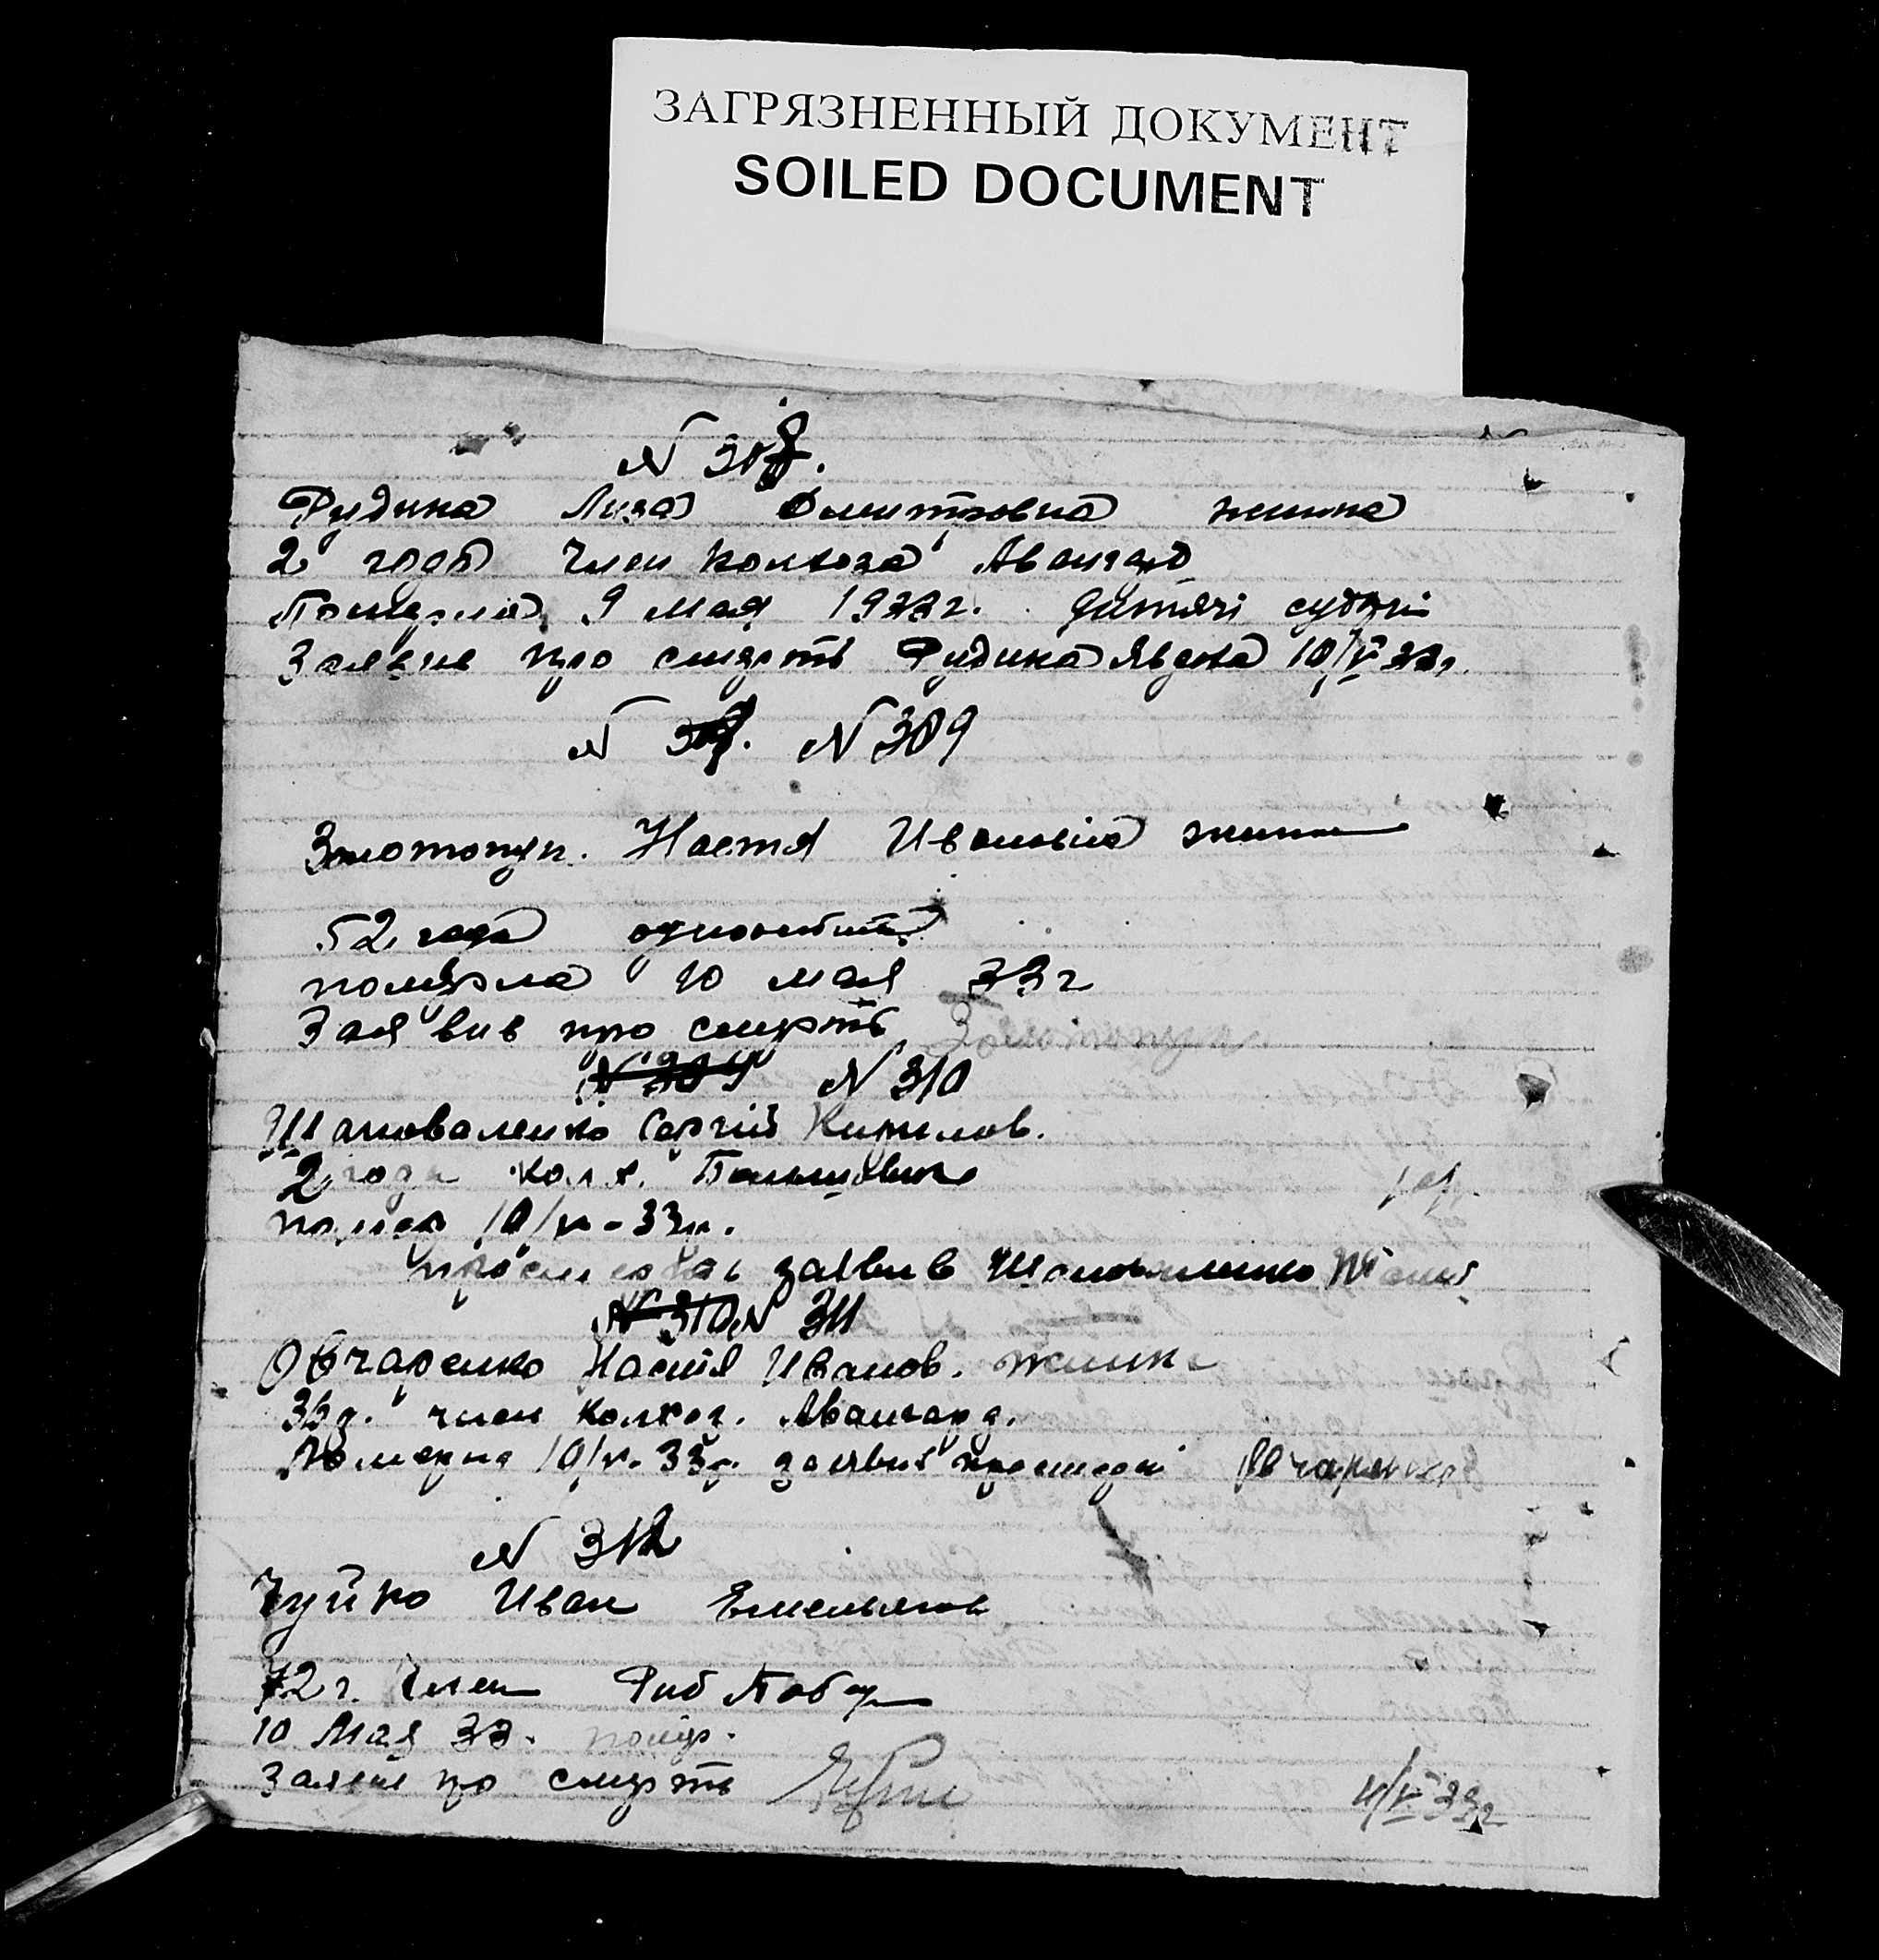 ЗАГРЯЗНЕННЫЙ ДОКУМЕНТ
SOILED DOCUMENT
N 308.
Фудина Лиза Дмитровна жинка
2 года член колхоза Авангард
Померла 9 мая 1933 г. дитячі судоги
Заявив про смерть Фудина 10/V 33г.
N N 309
Золотопуп. Настя Ивановна жинка
52 года
померла 10 мая 33 г
Заявив про смерть Золотопуп
N 309 N 310
Шаповаленко Сергій Кирилов.
2 года колх. Большевик
помер 10/V - 33г.
про смерть заявив Шаповаленко
N 310 N 311
Овчаренко Настя Иванов. жинка
член колхоз. Авангард.
Померла 10/V. 33г. заявив Овчаренко
N 312
Чуйко Иван Емельянов
72 г. член
10 Мая 33. помер.
Заявив про смерть
11/V 33г